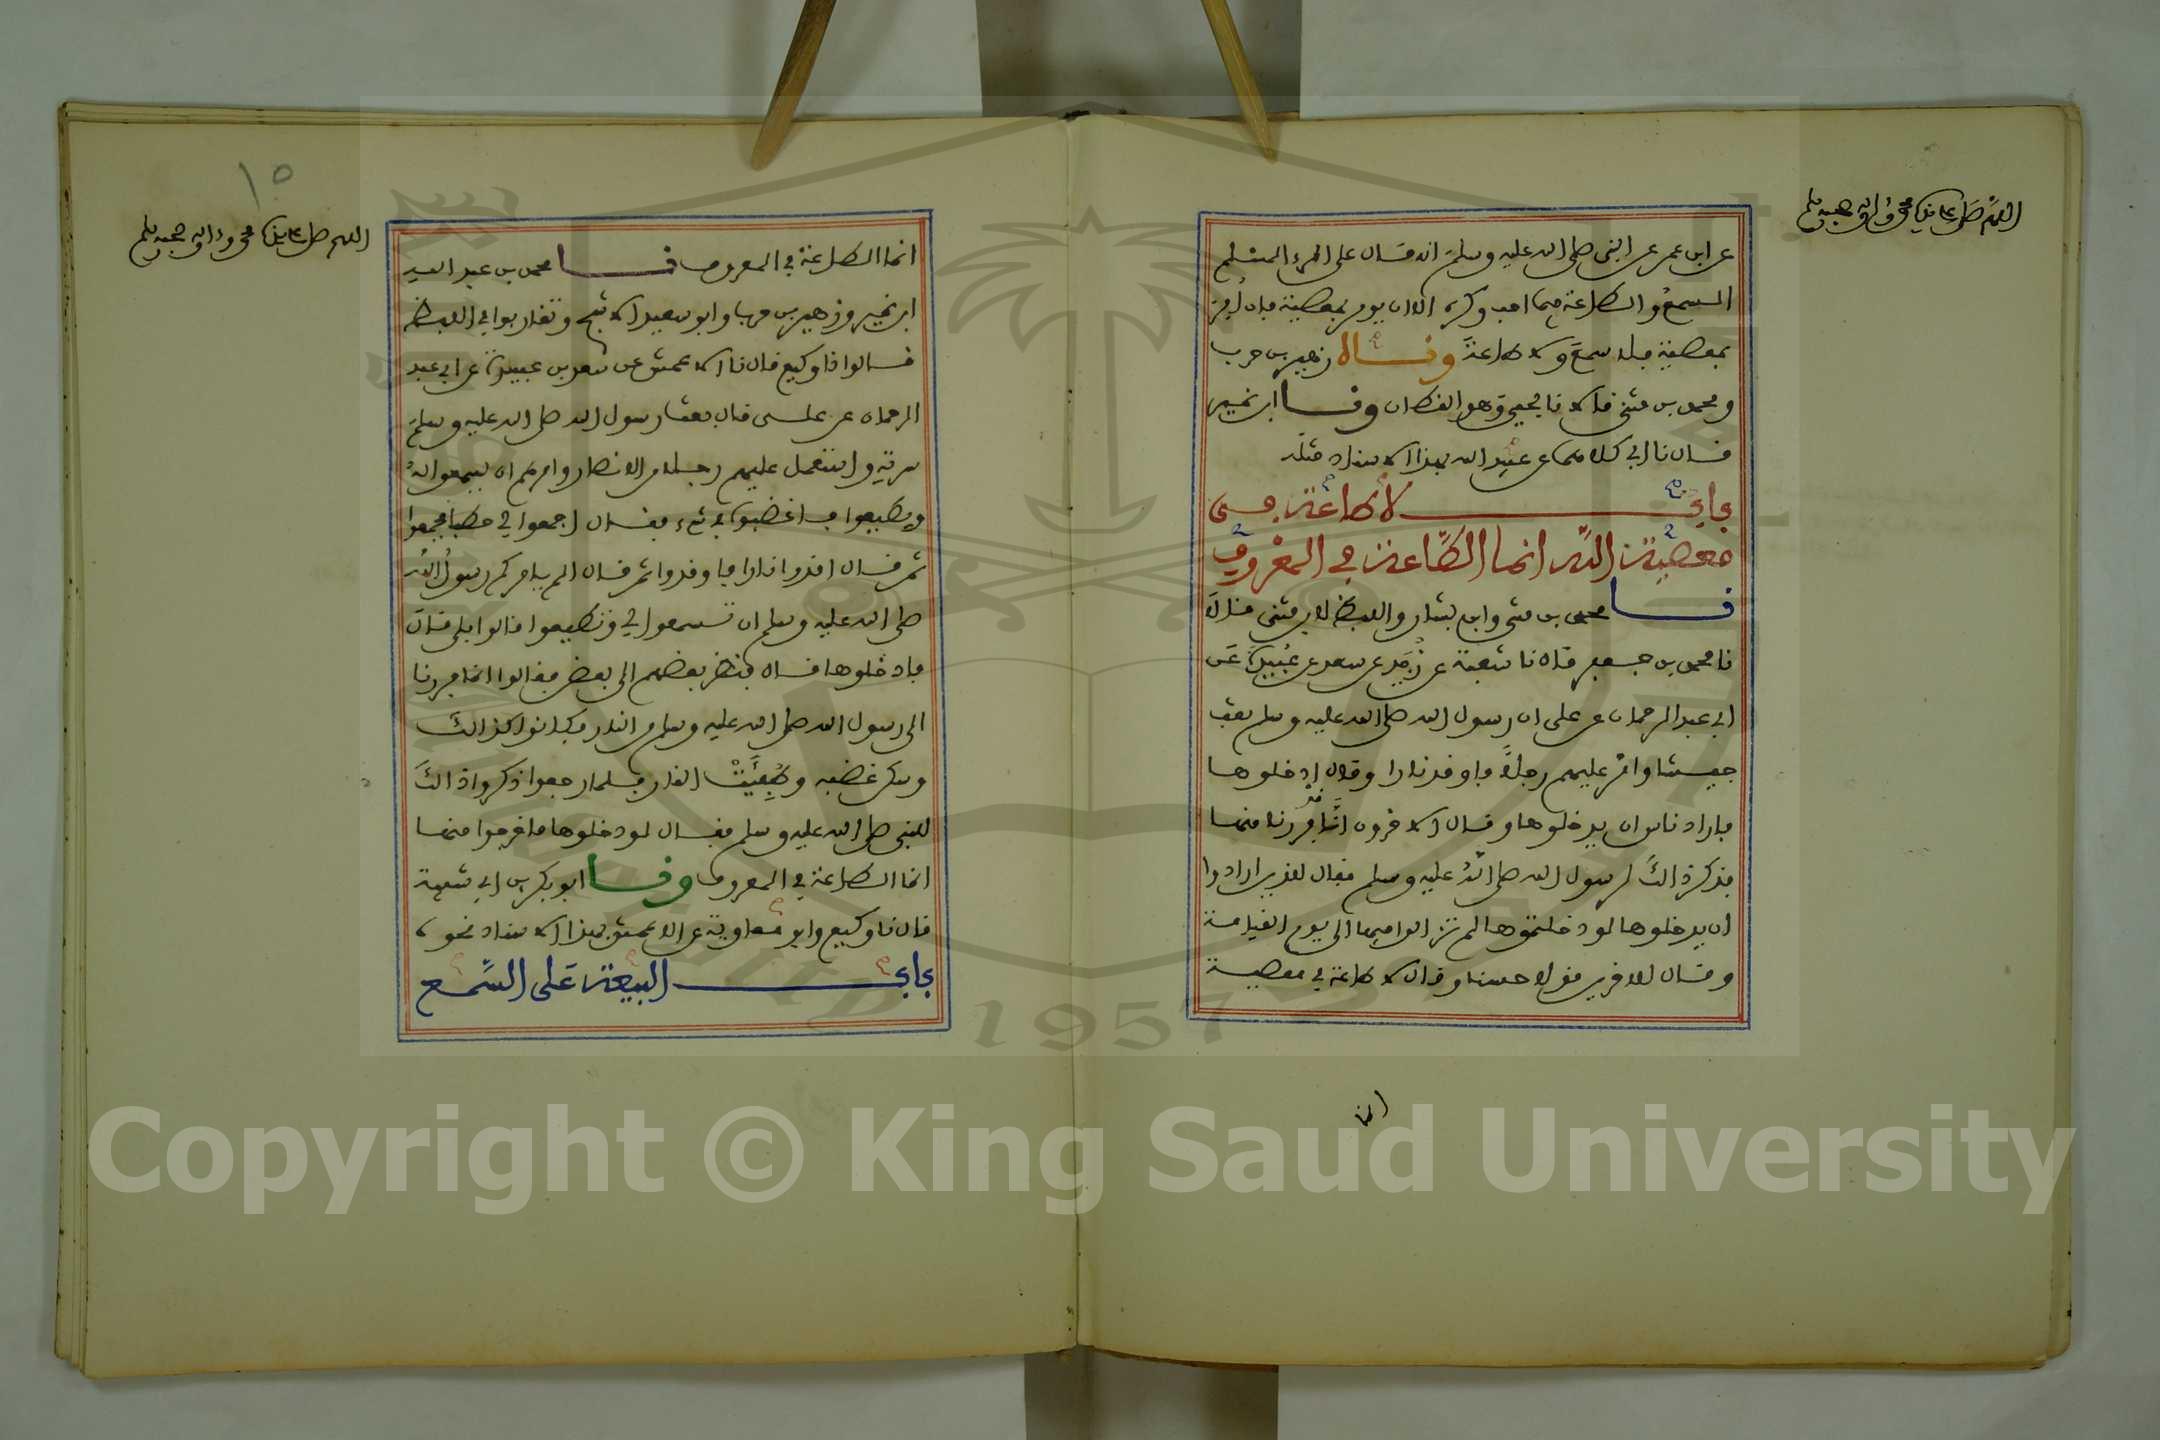 اللهم صل على سيدنا محمد وءاله وصحبه وسلم
عن ابن عمر عن النبي صلى الله عليه وسلم انه قال على المرء المسلم
السمع والطاعة فيما احب وكره الا ان يومر بمعصية فان امر
بمعصية فلا سمع ولا طاعة وناه زهير بن حرب
ومحمد بن مثنى قالا نا يحيى وهو القطان ونا ابن نمير
قال نا ابي كلاهما عن عبيد الله بهذا الاسناد مثله
باب لا طاعة في
معصية الله انما الطاعة في المعروف
نا محمد بن مثنى وابن بشار واللفظ لابن مثنى قالا
نا محمد بن جعفر قال نا شعبة عن زبيد عن سعد بن عبيدة عن
ابي عبد الرحمان عن علي ان رسول الله صلى الله عليه وسلم بعث
جيشا وامر عليهم رجلا فاوقد نارا وقال ادخلوها
فاراد ناس ان يدخلوها وقال الاخرون انا قد فررنا منها
فذكر ذالك لرسول الله صلى الله عليه وسلم فقال للذين ارادوا
ان يدخلوها لو دخلتموها لم تزالوا فيها الى يوم القيامة
وقال للاخرين قولا حسنا وقال لا طاعة في معصية
انما
١٥
اللهم صل على سيدنا محمد وءاله وصحبه وسلم
انما الطاعة في المعروف نا محمد بن عبد الله
ابن نمير وزهير بن حرب وابو سعيد الاشج وتقاربوا في اللفظ
قالوا نا وكيع قال نا الاعمش عن سعد بن عبيدة عن ابي عبد
الرحمان عن علي قال بعث رسول الله صلى الله عليه وسلم
سرية واستعمل عليهم رجلا من الانصار وامرهم ان يسمعوا له
ويطيعوا فاغضبوه في شيء فقال اجمعوا لي حطبا فجمعوا
ثم قال اوقدوا نارا فاوقدوا ثم قال الم يامركم رسول الله
صلى الله عليه وسلم ان تسمعوا لي وتطيعوا قالوا بلى قال
فادخلوها قال فنظر بعضهم الى بعض فقالوا انما فررنا
الى رسول الله صلى الله عليه وسلم من النار فكانوا كذالك
وسكن غضبه وطفئت النار فلما رجعوا ذكروا ذالك
للنبي صلى الله عليه وسلم فقال لو دخلوها ما خرجوا منها
انما الطاعة في المعروف ونا ابو بكر بن ابي شيبة
قال نا وكيع وابو معاوية عن الاعمش بهذا الاسناد نحوه
باب البيعة على السمع
Copyright © King Saud University
1957